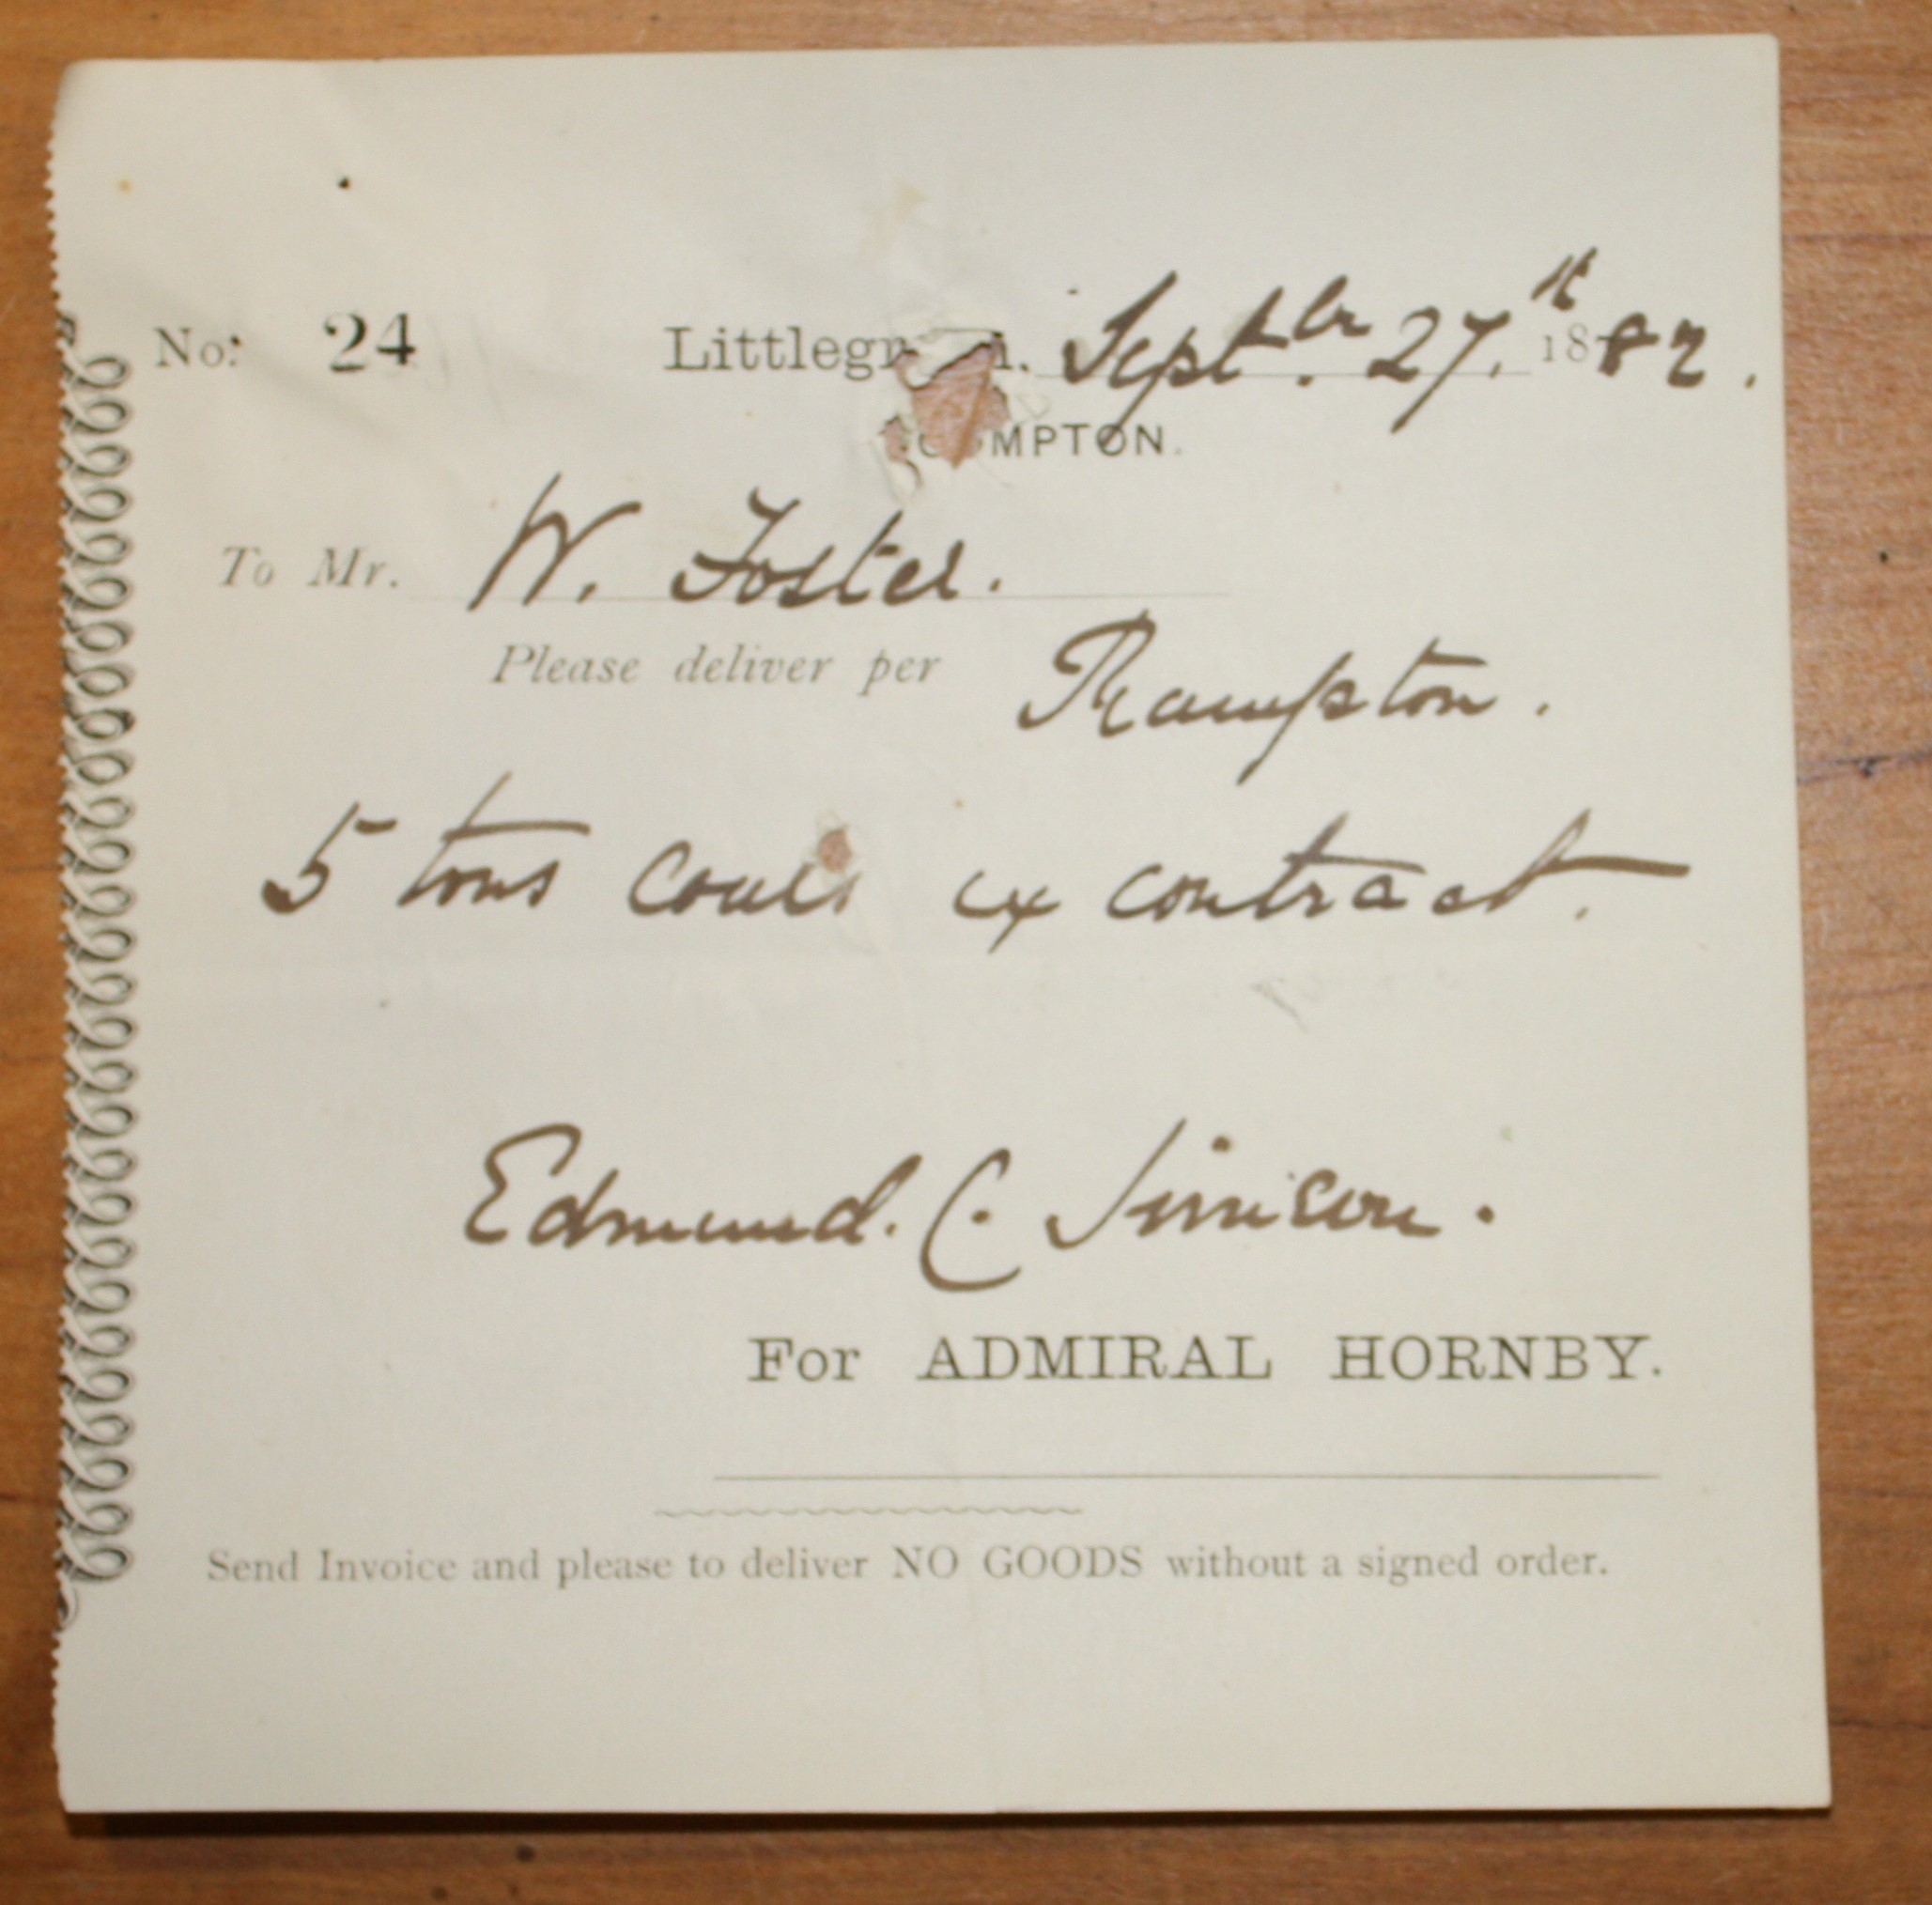 No: 24 Sept.br 27.th 1882.
COMPTON.
To Mr. W. Foster.
Please deliver per Rampton.
5 tons coals ex contract.
Edmund. C.
For ADMIRAL HORNBY.
Send Invoice and please to deliver NO GOODS without a signed order.